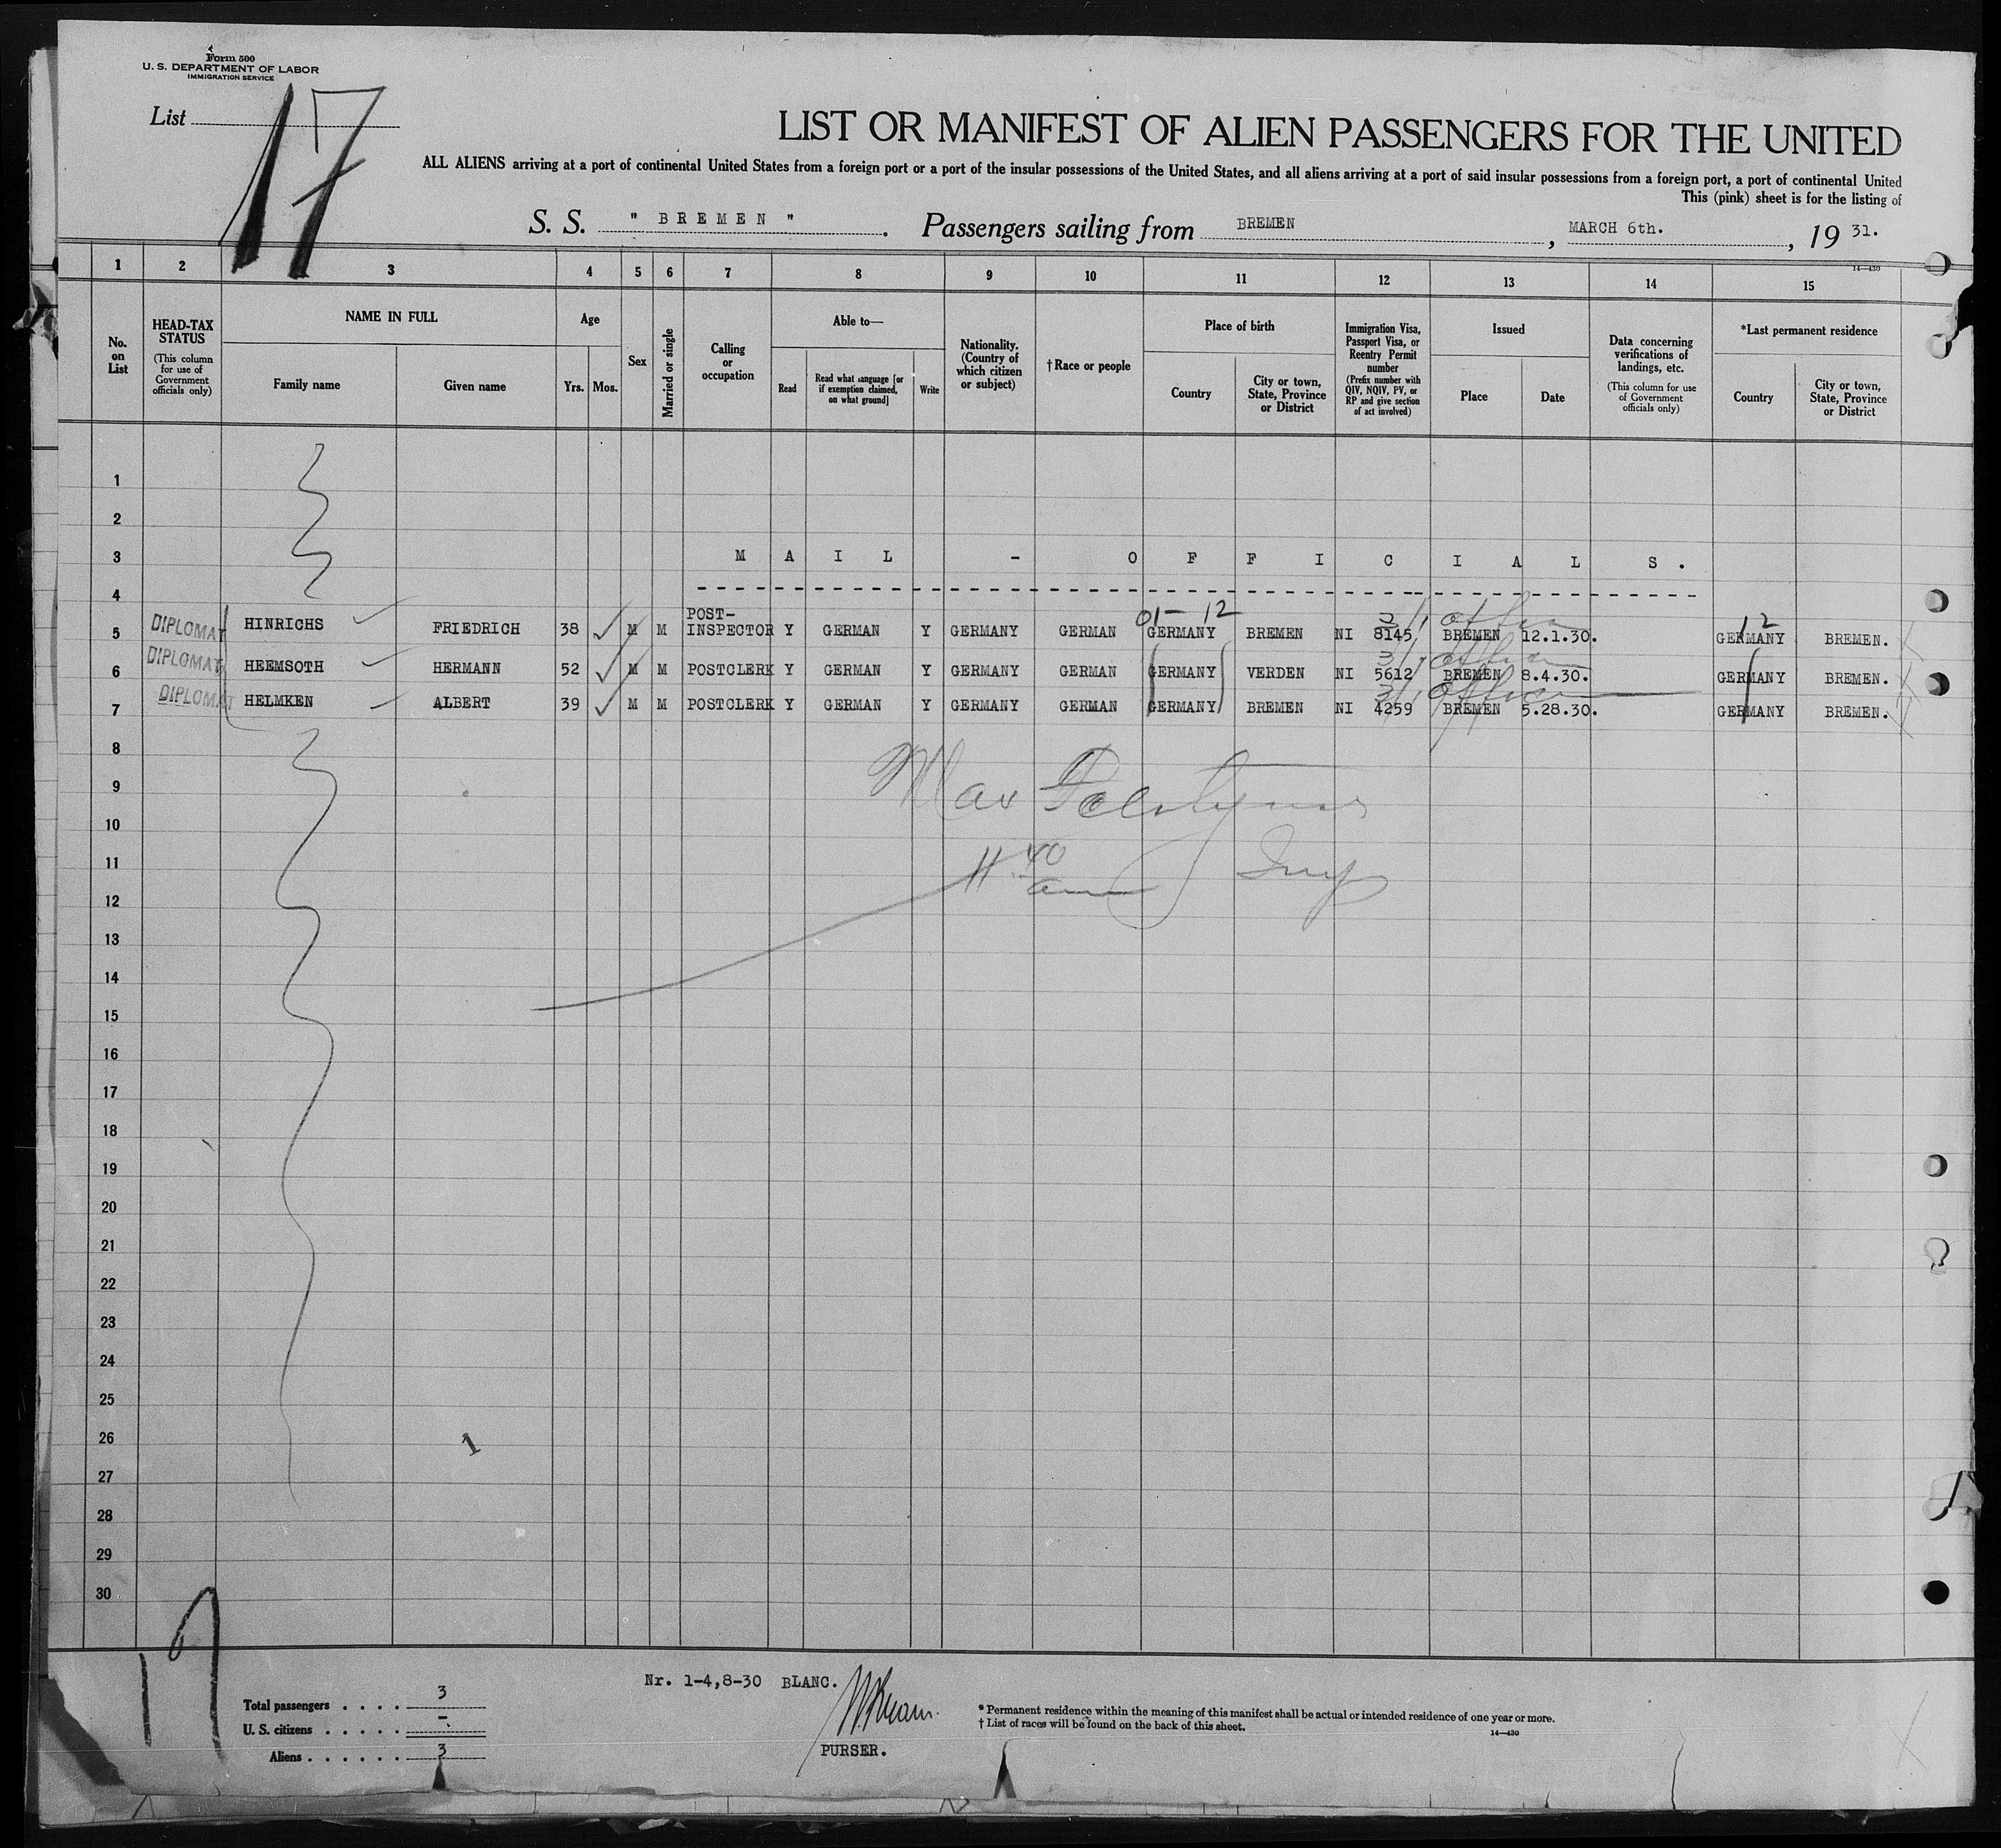 Form 500
U. S. DEPARTMENT OF LABOR
IMMIGRATION SERVICE
List 17
LIST OR MANIFEST OF ALIEN PASSENGERS FOR THE UNITED
ALL ALIENS arriving at a port of continental United States from a foreign port or a port of the insular possessions of the United States, and all aliens arriving at a port of said insular possessions from a foreign port, a port of continental United
This (pink) sheet is for the listing of
S. S. " BREMEN ". Passengers sailing from BREMEN, MARCH 6th., 19 31.
14—430
1 2 3 4 5 6 7 8 9 10 11 12 13 14 15
No. on List
HEAD-TAX STATUS (This column for use of Government officials only)
NAME IN FULL
Family name Given name
Age
Yrs. Mos.
Sex
Married or single
Calling or occupation
Able to—
Read
Read what language [or if exemption claimed, on what ground]
Write
Nationality. (Country of which citizen or subject)
† Race or people
Place of birth
Country
City or town, State, Province or District
Immigration Visa, Passport Visa, or Reentry Permit number (Prefix number with QIV, NQIV, PV, or RP and give section of act involved)
Issued
Place Date
Data concerning verifications of landings, etc. (This column for use of Government officials only)
*Last permanent residence
Country
City or town, State, Province or District
1
2
3 MAIL - OFFICIALS.
4
01- 12 12
5 DIPLOMAT HINRICHS FRIEDRICH 38 M M POST-INSPECTOR Y GERMAN Y GERMANY GERMAN GERMANY BREMEN NI 8145 BREMEN 12.1.30. GERMANY BREMEN.
6 DIPLOMAT HEEMSOTH HERMANN 52 M M POSTCLERK Y GERMAN Y GERMANY GERMAN GERMANY VERDEN NI 5612 BREMEN 8.4.30. GERMANY BREMEN.
7 DIPLOMAT HELMKEN ALBERT 39 M M POSTCLERK Y GERMAN Y GERMANY GERMAN GERMANY BREMEN NI 4259 BREMEN 5.28.30. GERMANY BREMEN.
8
9 Max
10
11 11 40 am Insp
12
13
14
15
16
17
18
19
20
21
22
23
24
25
26 1
27
28
29
30
17
Nr. 1-4,8-30 BLANC.
Total passengers . . . . 3
U. S. citizens . . . . . -
Aliens . . . . . . 3
PURSER.
* Permanent residence within the meaning of this manifest shall be actual or intended residence of one year or more.
† List of races will be found on the back of this sheet.
14—430